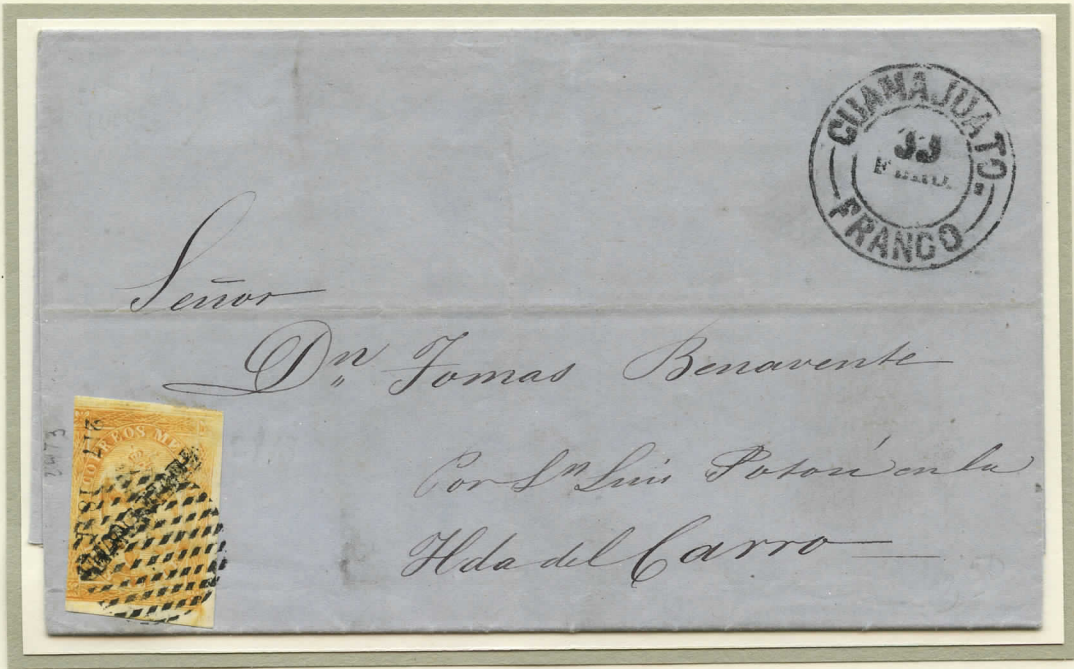 GUANAJUATO.
FRANCO
Señor
Dn Tomas Benavente
Por Sn Luis Potosí en la
Hda del Carro
CORREOS ME
2473